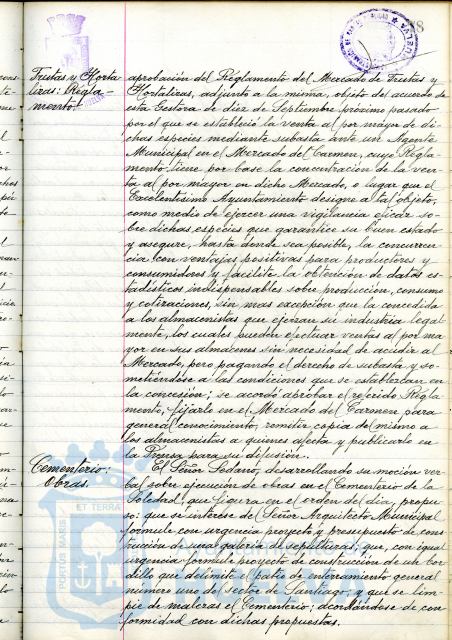 Frutas y Horta-
lizas: Regla-
mento.
aprobación del Reglamento del Mercado de Frutas y
Hortalizas, adjunto a la misma, objeto de acuerdo de
esta Gestora de diez de Septiembre próximo pasado
por el que se estableció la venta al por mayor de di-
chas especies mediante subasta ante un Agente
Municipal en el Mercado del Carmen, cuyo Regla-
mento tiene por base la concentración de la ven-
ta al por mayor en dicho Mercado, o lugar que el
Excelentísimo Ayuntamiento designe a tal objeto,
como medio de ejercer una vigilancia eficaz so-
bre dichas especies que garantice su buen estado
y asegure, hasta donde sea posible, la concurren-
cia con ventajas positivas para productores y
consumidores y facilite la obtención de datos es-
tadísticos indispensables sobre producción, consumo
y cotizaciones, sin mas excepción que la concedida
a los almacenistas que ejerzan su industria legal-
mente, los cuales pueden efectuar ventas al por ma-
yor en sus almacenes sin necesidad de acudir al
Mercado, pero pagando el derecho de subasta y so-
metiéndose a las condiciones que se establezcan en
la concesión; se acordó aprobar el referido Regla-
mento, fijarlo en el Mercado del Carmen para
general conocimiento, remitir copia del mismo a
los almacenistas a quienes afecta y publicarlo en
la Prensa para su difusión.
Cementerio:
Obras.
El Señor Sedano, desarrollando su moción ver-
bal sobre ejecución de obras en el Cementerio de la
Soledad, que figura en el orden del día, propu-
so: que se interese de Señor Arquitecto Municipal
formule con urgencia proyecto y presupuesto de cons-
trucción de una galería de sepulturas; que, con igual
urgencia formule proyecto de construcción de un bor-
dillo que delimite el patio de enterramiento general
numero uno del sector de Santiago, y que se lim-
pie de malezas el Cementerio; acordándose de con-
formidad con dichas propuestas.
PORTUS MARIS ET TERRAE